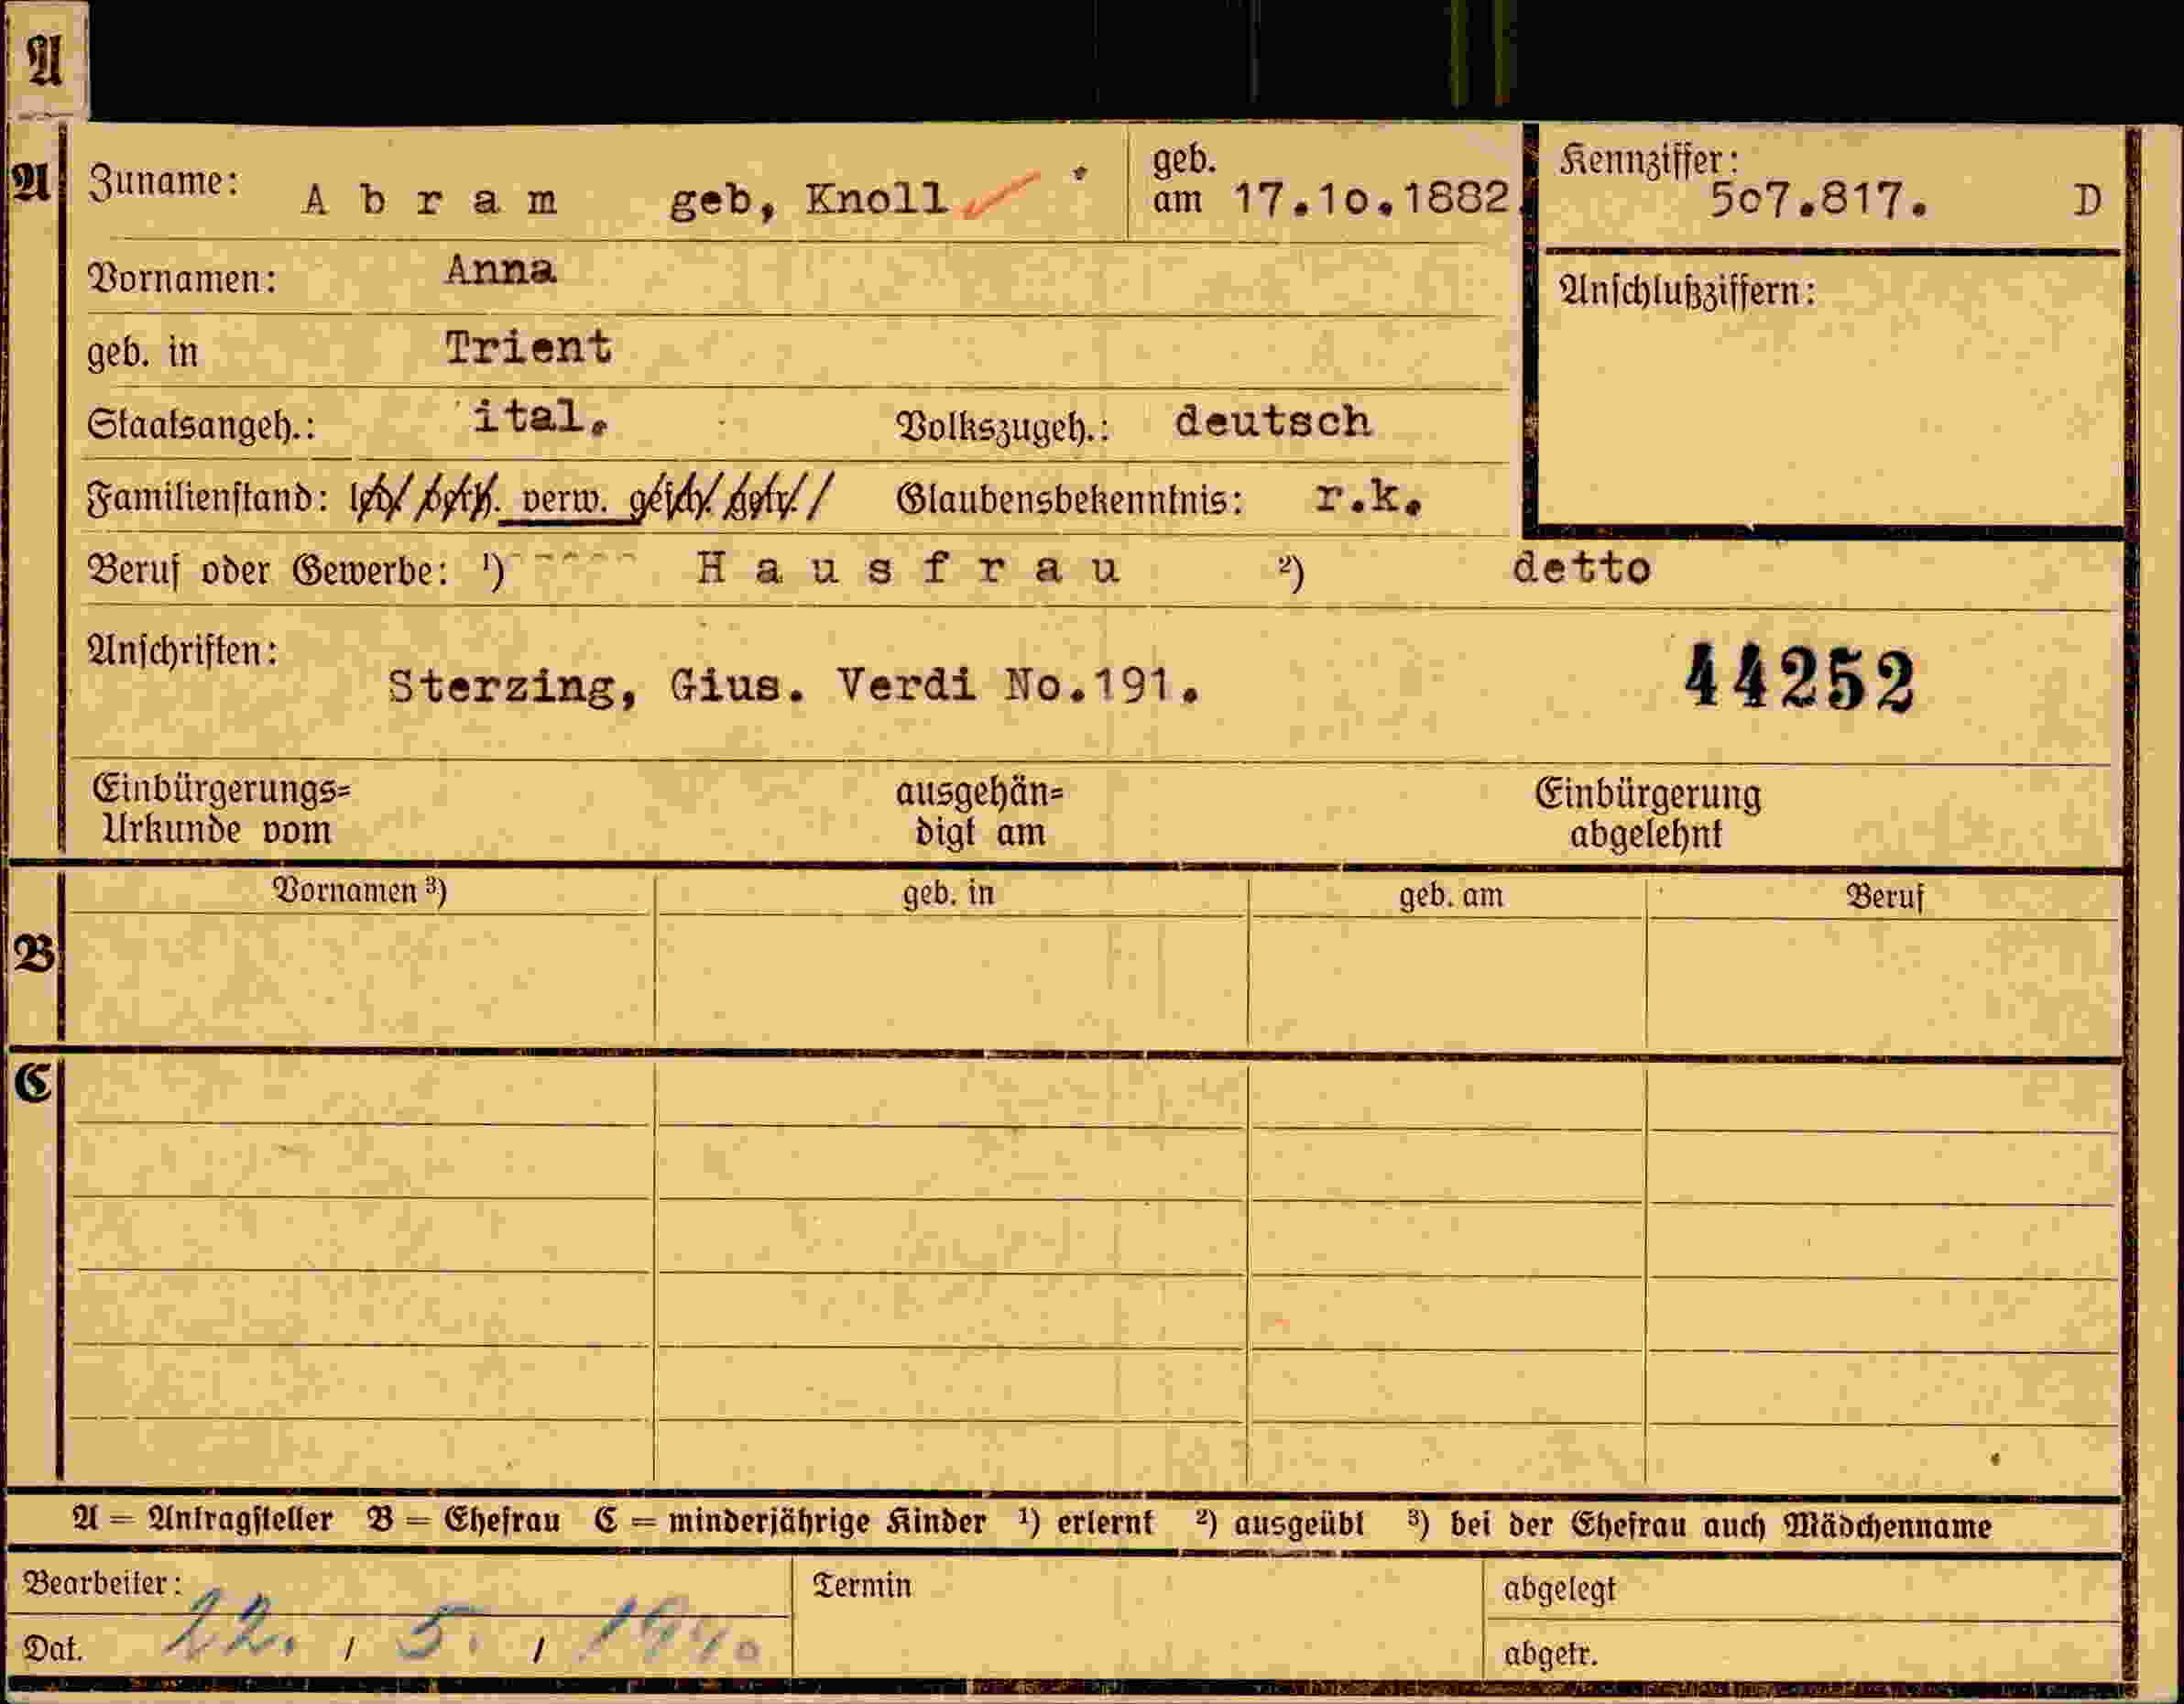 A
A
Zuname: Abram geb, Knoll
geb. am 17.10.1882.
Kennziffer: 507.817. D
Vornamen: Anna
Anschlußziffern:
geb. in Trient
Staatsangeh.: ital. Volkszugeh.: deutsch
Familienstand: led. verh. verw. gesch. getr. Glaubensbekenntnis: r.k.
Beruf oder Gewerbe: ¹) Hausfrau ²) detto
Anschriften: Sterzing, Gius. Verdi No.191. 44252
Einbürgerungs= ausgehän= Einbürgerung
Urkunde vom digt am abgelehnt
Vornamen ³) geb. in geb. am Beruf
B
C
A = Antragsteller B = Ehefrau C = minderjährige Kinder ¹) erlernt ²) ausgeübt ³) bei der Ehefrau auch Mädchenname
Bearbeiter: Termin abgelegt
Dat. 22. / 5. / 1940 abgetr.